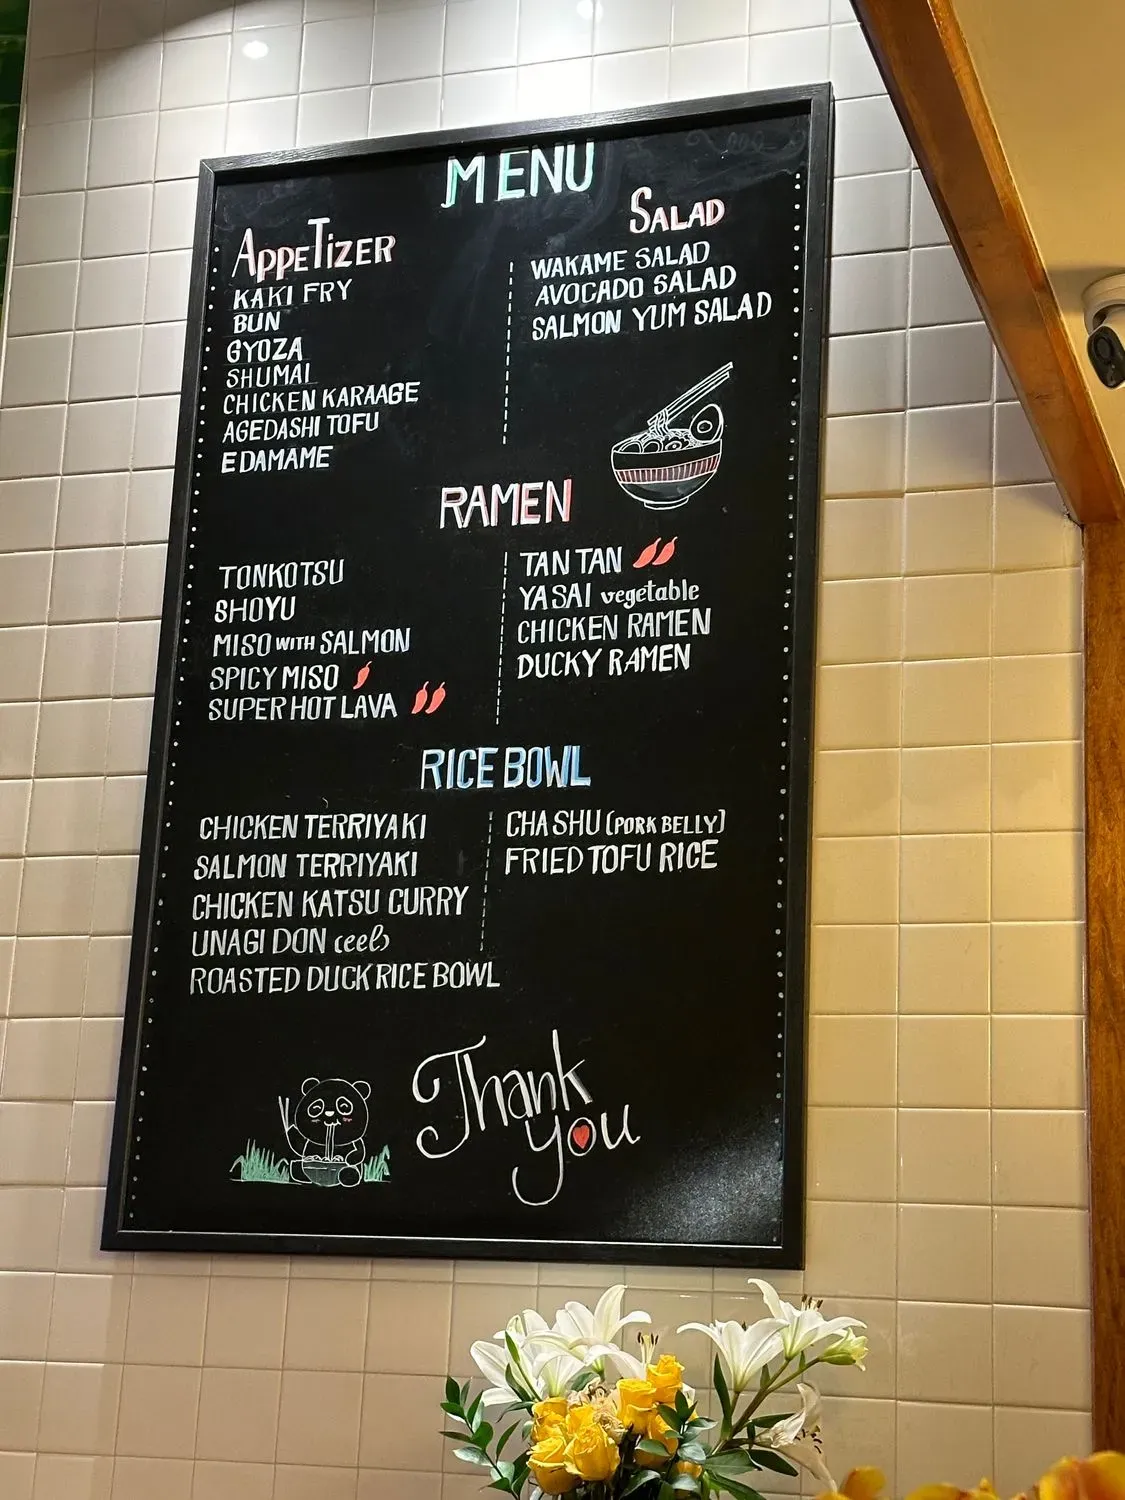 MENU
APPETIZER
KAKI FRY
BUN
GYOZA
SHUMAI
CHICKEN KARAAGE
AGEDASHI TOFU
EDAMAME
SALAD
WAKAME SALAD
AVOCADO SALAD
SALMON YUM SALAD
RAMEN
TONKOTSU
SHOYU
MISO WITH SALMON
SPICY MISO
SUPER HOT LAVA
TAN TAN
YASAI vegetable
CHICKEN RAMEN
DUCKY RAMEN
RICE BOWL
CHICKEN TERRIYAKI
SALMON TERRIYAKI
CHICKEN KATSU CURRY
UNAGI DON (eel)
ROASTED DUCK RICE BOWL
CHASHU (PORK BELLY)
FRIED TOFU RICE
Thank
you